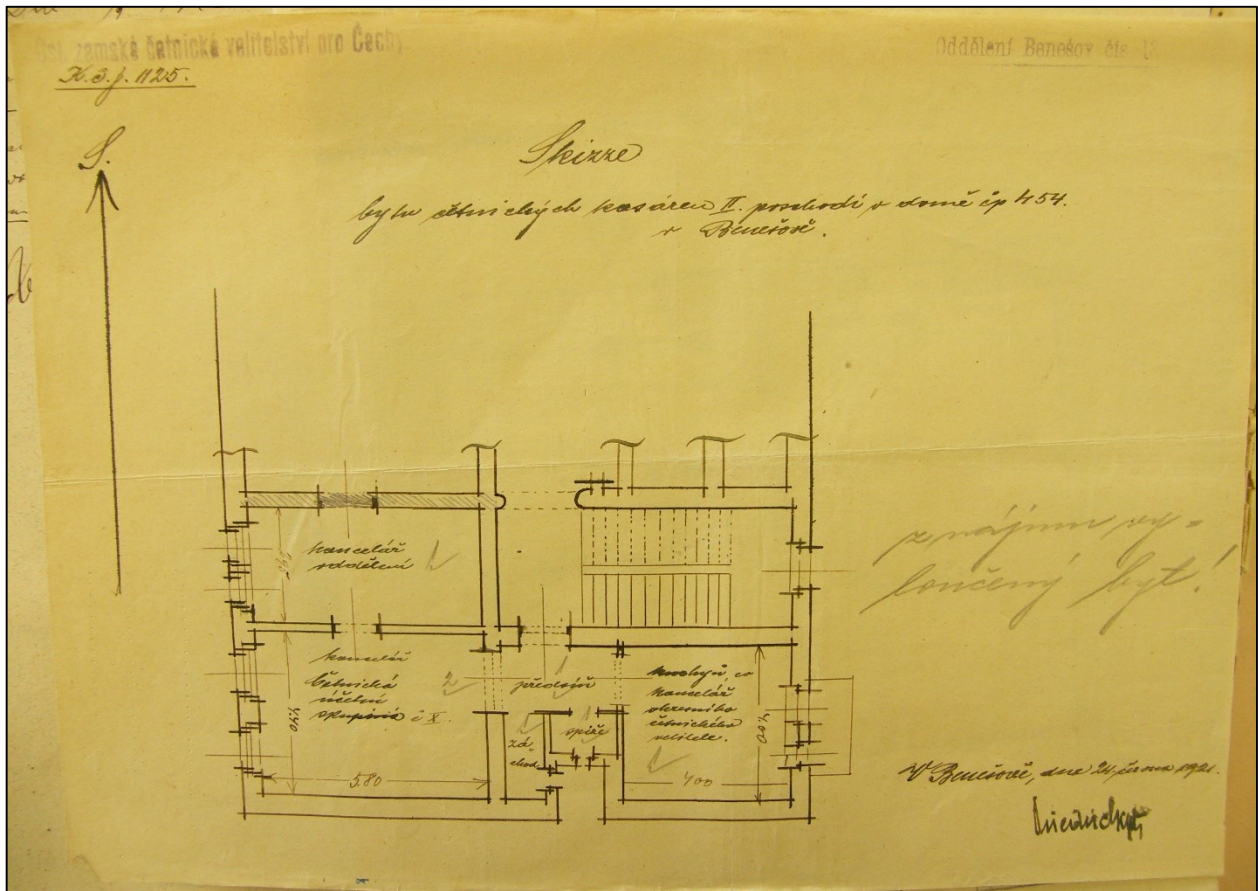 zemské četnické velitelství pro Čechy
Oddělení Benešov čís
S.
Skizze
bytu četnických kasáren II. poschodí v domě čp 454.
v Benešově.
kancelář
oddělení 1
kancelář
četnická
účetní
skupina č X.
2
předsíň
kuchyň, co
kancelář
okresního
četnického
velitele.
zá-
chod
spíž
580
400
z nájmu vy-
loučený byt!
V Benešově, dne 24. června 1921.